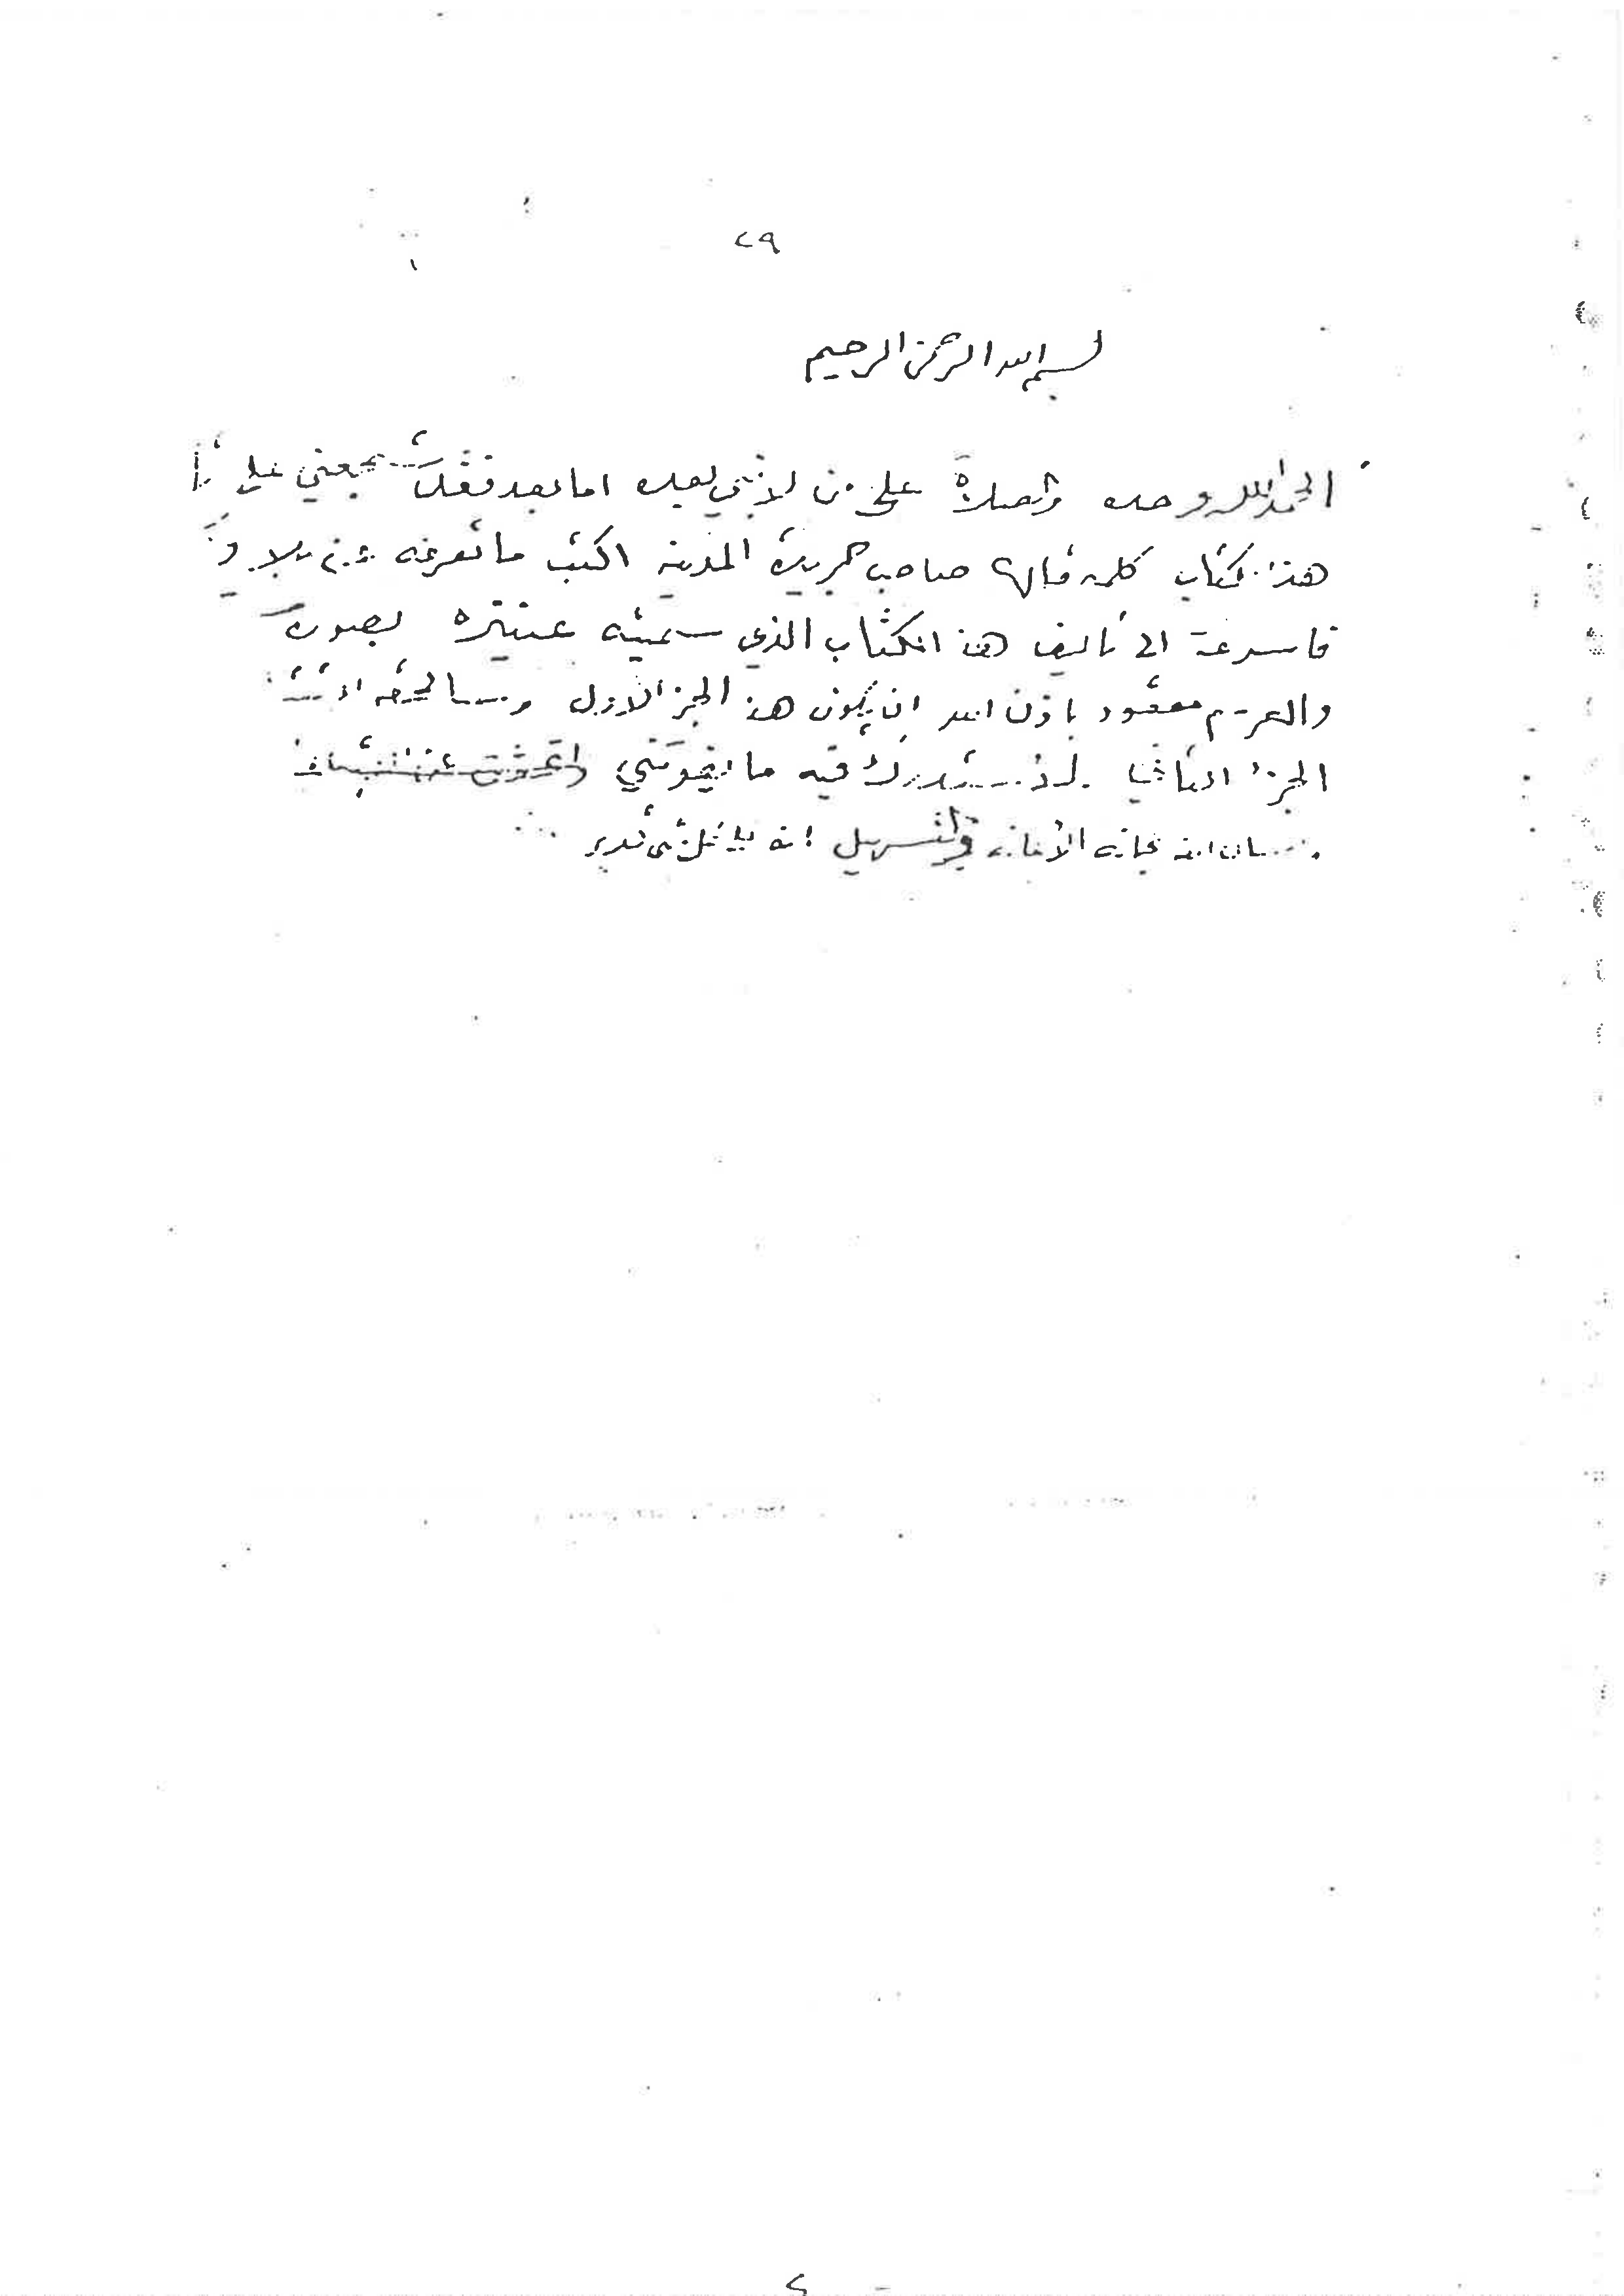 ٢٩
بسم الله الرحمن الرحيم
الحمد لله وحده والصلاة على من لا نبي بعده اما بعد فقد شجعني على
هذا الكتاب كلمه قالها صاحب جريدة المدينه اكتب ما تعرفه عن بلادك
فاسرعة الى تأليف هذا الكتاب الذي سميته عنيزه بصورة
والعزم معقود باذن الله ان يكون هذا الجز الاول وسالحقه
الجزء الثاني ما يفوتني
الأعانه والتسهيل انه على كل شي قدير
٢